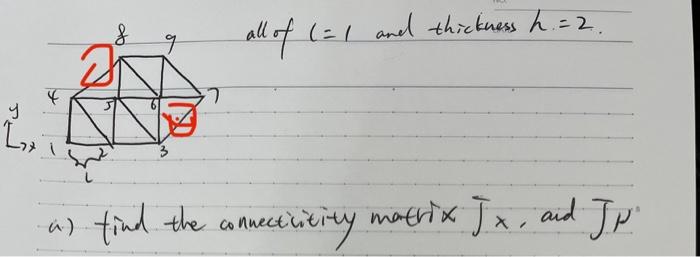 all of l=1 and thickness h=2.
8 9
4 5 6 7
y
x 1 2 3
L
a) find the connecticity matrix Jx, and Jµ